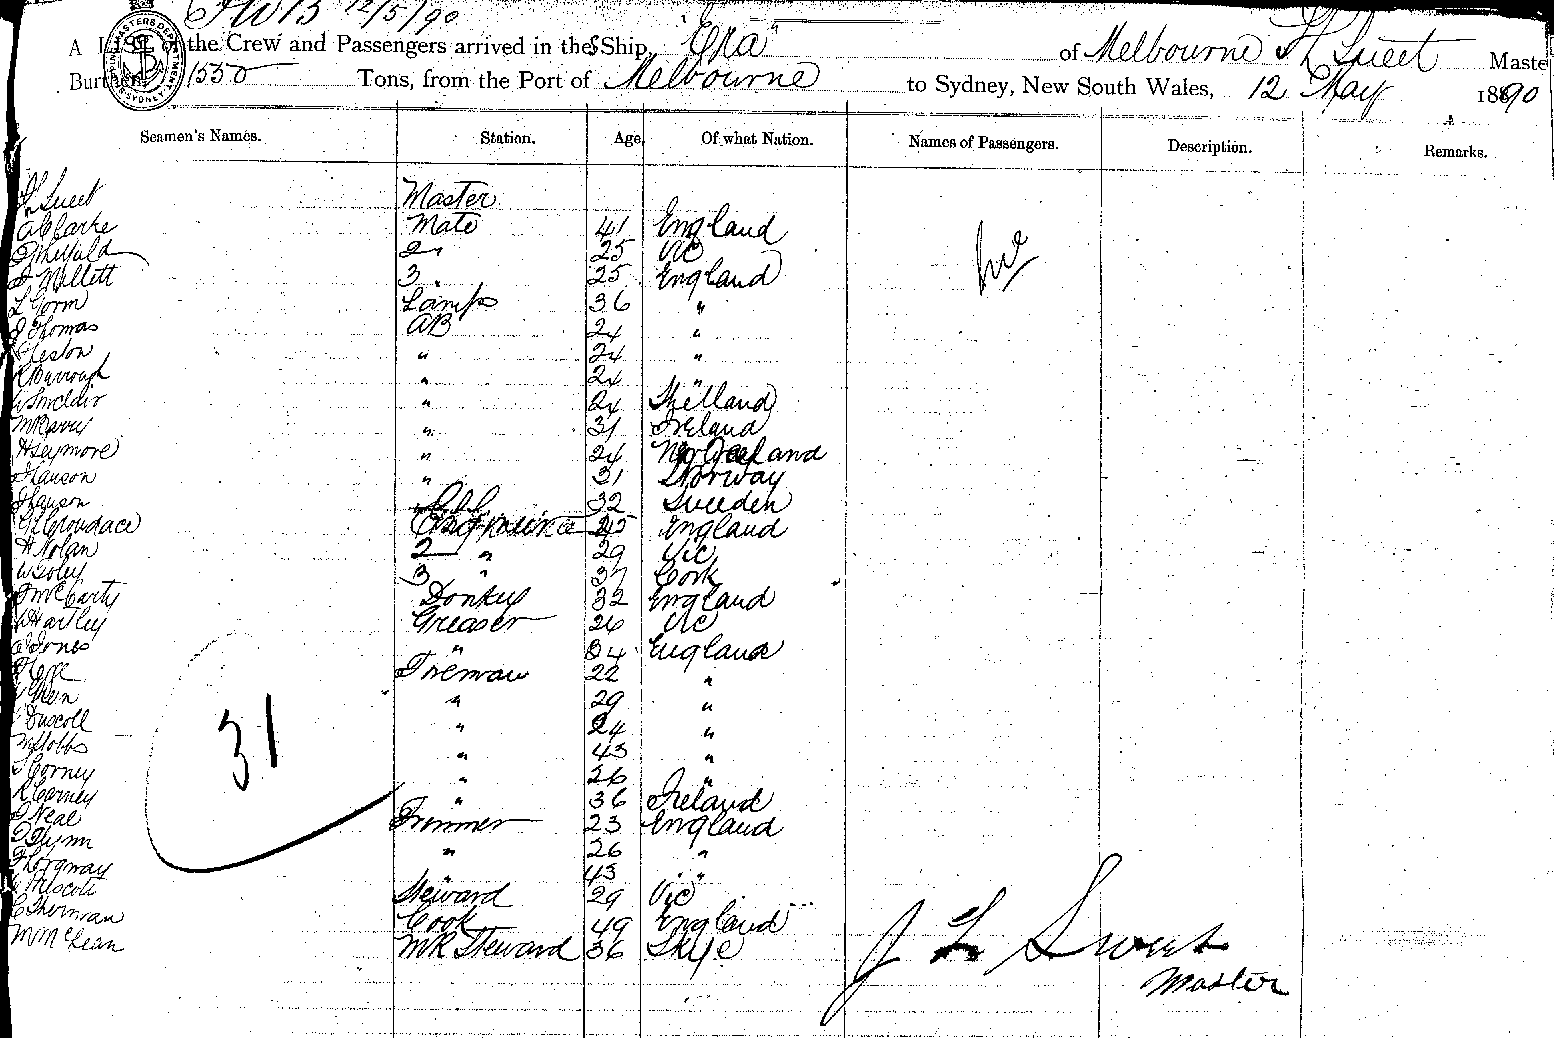 12/5/90
A LIST of the Crew and Passengers arrived in the S Ship, "Era" of Melbourne J L Sweet Maste
Burthen 1550 Tons, from the Port of Melbourne to Sydney, New South Wales, 12 May 1890
Seamen's Names. Station. Age. Of what Nation. Names of Passengers. Description. Remarks.
J L Sweet Master
A Clarke Mate 41 England
2 " 25 Vic
Millett 3 " 25 England
L Gorm Lamps 36 "
J Thomas AB 24 "
Heston " 24 "
R Burrough " 24 "
Sinclair " 24 Shetland
" 31 Ireland
H Seymore " 24 New Zealand
Hanson " 31 Norway
Hanson 32 Sweden
Croudace England
H Nolan 2 " 29 Vic
W Foley 3 " 37 Cork
McCarty Donkey 32 England
Hartley Greaser 26 Vic
Jones " 34 England
Fireman 22 "
" 29 "
Driscoll " 24 "
Hobbs " 43 "
Corney " 26 "
R Carney " 36 Ireland
Neal Trimmer 23 England
Flynn " 26 "
43 "
Steward 29 Vic
Cook 49 England
M McLean M R Steward 36 Skye
31
J L Sweet
Master